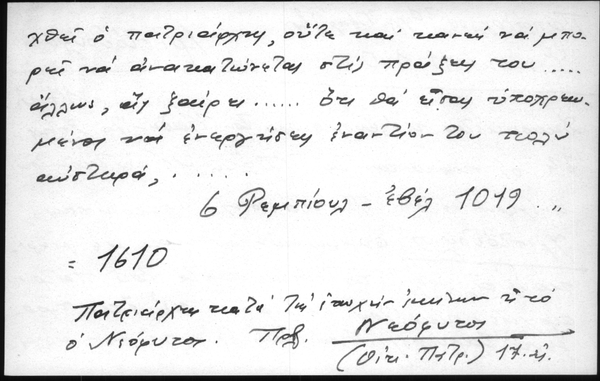 χθεῖ ὁ πατριάρχης, οὔτε καί κανείς νά μπο-
ρεῖ νά ἀνακατώνεται στίς πράξεις του .....
ἄλλως, ἄς ξαίρει ...... ὅτι θά εἶσαι ὑποχρεω-
μένος νά ἐνεργήσεις ἐναντίον του πολύ
αὐστηρά, . . . . . .
6 Ρεμπιούλ - ἐβέλ 1019 ..
= 1610
Πατριάρχης κατά τήν ἐποχήν ἐκείνην ἦτο
ὁ Νεόφυτος. Πρβ. Νεόφυτος
(Οἰκ. Πατρ.) 17. αἰ.